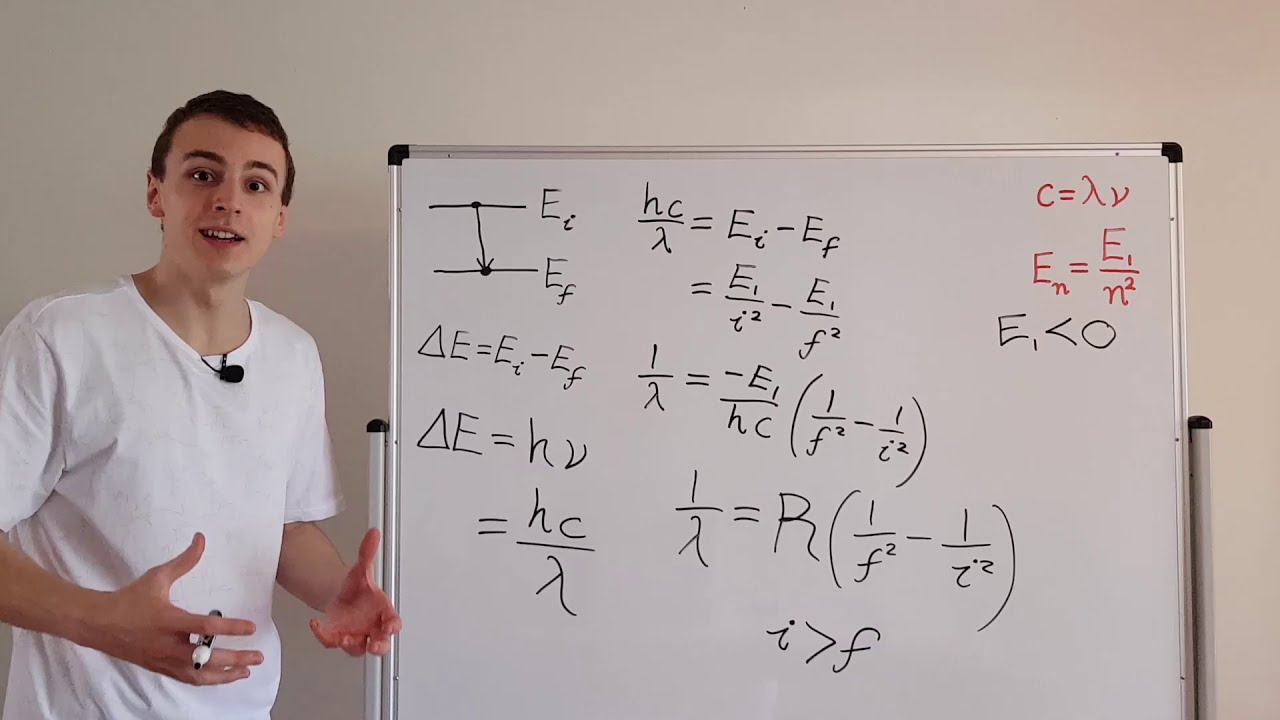 Eᵢ
E_f
ΔE = Eᵢ - E_f
ΔE = hν
= hc/λ
hc/λ = Eᵢ - E_f
= E₁/i² - E₁/f²
1/λ = -E₁/hc (1/f² - 1/i²)
1/λ = R(1/f² - 1/i²)
i > f
c = λν
Eₙ = E₁/n²
E₁ < 0